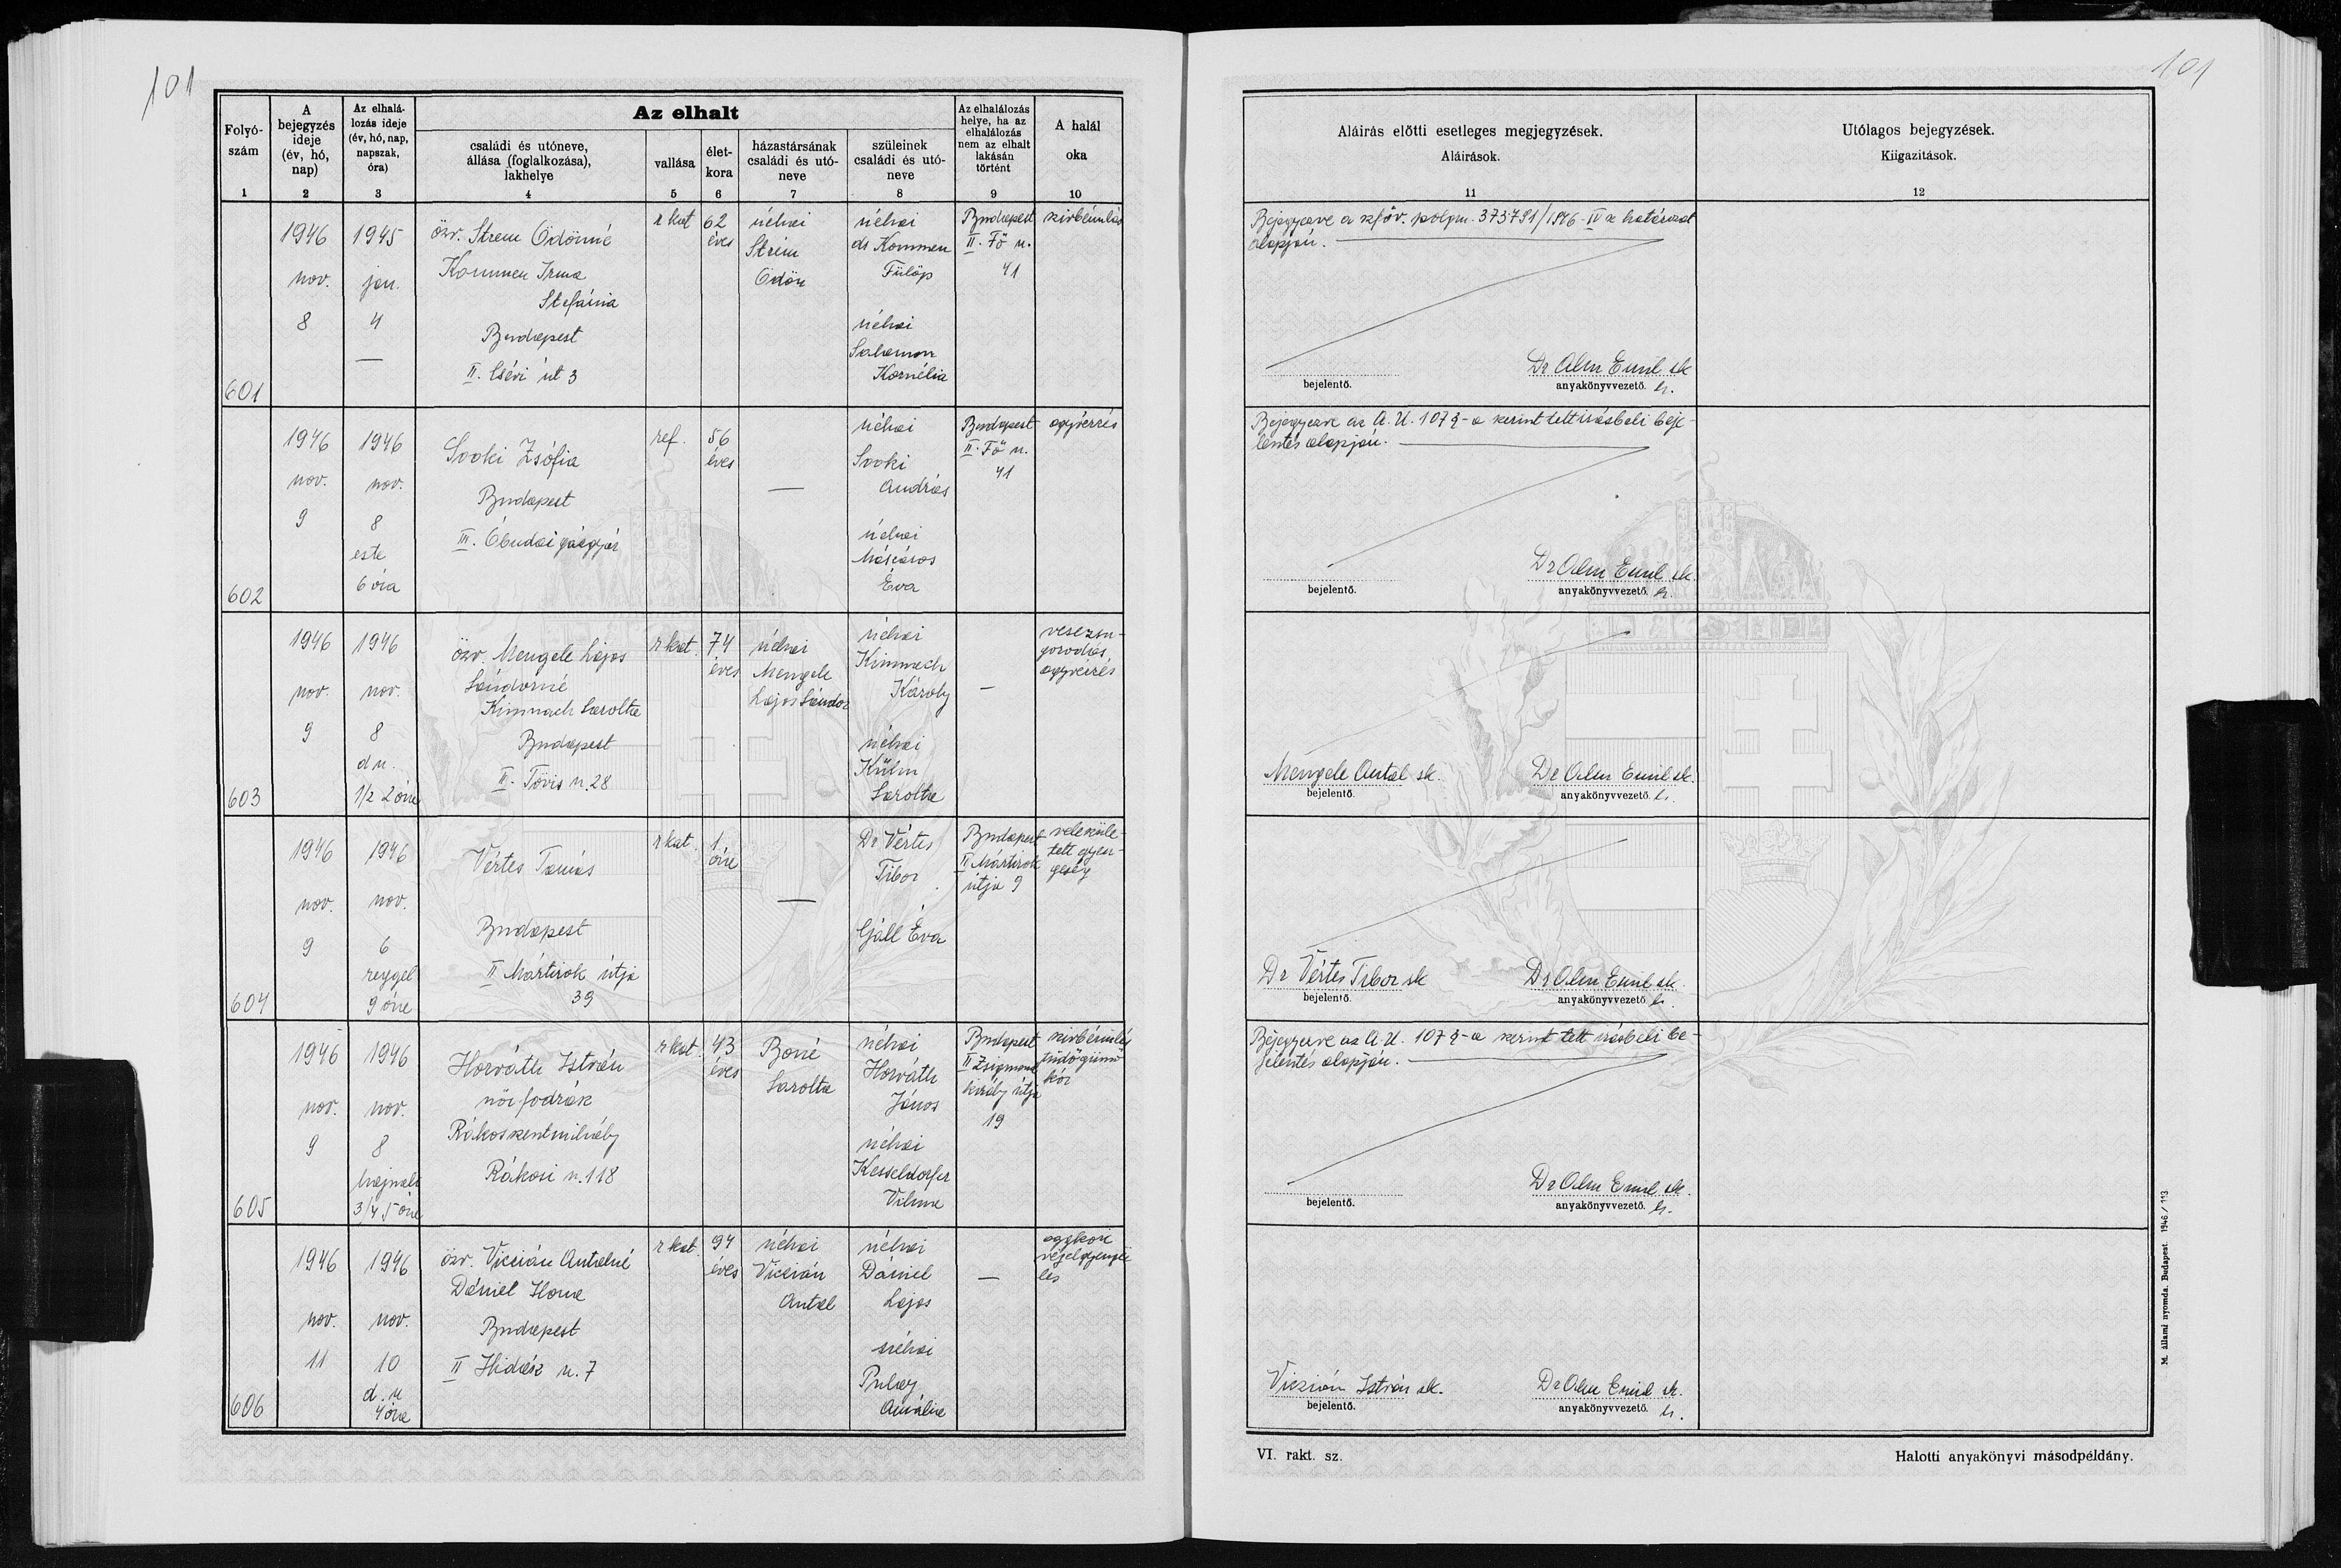 101
101
Folyó-
szám
1
A
bejegyzés
ideje
(év, hó,
nap)
2
Az elhalá-
lozás ideje
(év, hó, nap,
napszak,
óra)
3
Az elhalt
családi és utóneve,
állása (foglalkozása),
lakhelye
4
vallása
5
élet-
kora
6
házastársának
családi és utó-
neve
7
szüleinek
családi és utó-
neve
8
Az elhalálozás
helye, ha az
elhalálozás
nem az elhalt
lakásán
történt
9
A halál
oka
10
Aláírás előtti esetleges megjegyzések.
Aláírások.
11
Utólagos bejegyzések.
Kiigazítások.
12
601
1946
nov.
8
1945
jan.
4
—
özv. Strem Ödönné
Kommen Irma
Stefánia
Budapest
II. Csévi út 3
r kat
62
éves
néhai
Strém
Ödön
néhai
Kommen
Fülöp
néhai
Salamon
Kornélia
Budapest
II. Fő u.
41
szivbénulás
Bejegyezve a szföv. polgm. 373791/1946-IV sz határozat
alapján.
bejelentő.
Dr Olm Emil sk
anyakönyvvezető. h.
602
1946
nov.
9
1946
nov.
8
este
6 óra
Sooki Zsófia
Budapest
III. Óbudai gázgyár
ref.
56
éves
—
néhai
Sooki
András
néhai
Mészáros
Éva
Budapest
II. Fő u.
41
agyvérzés
Bejegyezve az A. U. 107 §-a szerint tett irásbeli beje-
lentés alapján.
bejelentő.
Dr Olm Emil sk.
anyakönyvvezető. h.
603
1946
nov.
9
1946
nov.
8
d u.
1/2 2 óra
özv. Mengele Lajos
Sándorné
Kimnach Sarolta
Budapest
II. Tövis u. 28
r kat.
74
éves
néhai
Mengele
Lajos Sándor
néhai
Kimnach
Károly
néhai
Kühn
Sarolta
—
vesezsu-
gorodás
agyvérzés
Mengele Antal sk.
bejelentő.
Dr Olm Emil sk.
anyakönyvvezető. h.
604
1946
nov.
9
1946
nov.
6
reggel
9 óra
Vértes Tamás
Budapest
II Mártirok útja
39
r kat.
1
óra
—
Dr Vértes
Tibor
Gáll Éva
Budapest
II Mártirok
útja 9
veleszüle-
tett gyen-
geség
Dr Vértes Tibor sk
bejelentő.
Dr Olm Emil sk.
anyakönyvvezető h.
605
1946
nov.
9
1946
nov.
8
hajnali
3/4 5 óra
Horváth István
női fodrász
Rákosszentmihály
Rákosi u. 118
r kat.
43
éves
Boné
Sarolta
néhai
Horváth
János
néhai
Kesseldorfer
Vilma
Budapest
II Zsigmond
király útja
19
szivbénulás
tüdőgümő
kór
Bejegyezve az A. U. 107 §-a szerint tett irásbeli be-
jelentés alapján.
bejelentő.
Dr Olm Emil sk.
anyakönyvvezető. h.
606
1946
nov.
11
1946
nov.
10
d. u
4 óra
özv. Viczián Antalné
Dániel Ilona
Budapest
II Hidász u. 7
r kat.
94
éves
néhai
Viczián
Antal
néhai
Dániel
Lajos
néhai
Pulay
Amália
—
aggkori
végelgyengü
lés
Viczián István sk.
bejelentő.
Dr Olm Emil sk.
anyakönyvvezető. h.
VI. rakt. sz.
Halotti anyakönyvi másodpéldány.
M. állami nyomda. Budapest. 1946. / 113